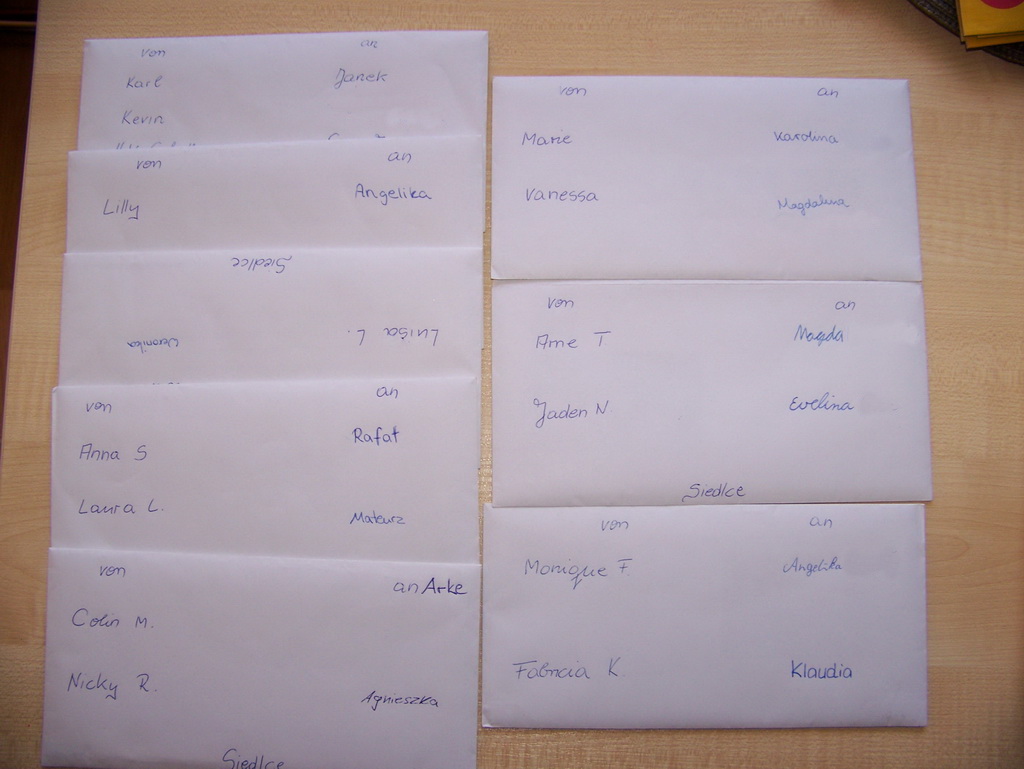 von an
Karl Janek
Kevin
von an
Lilly Angelika
Siedlce
Luisa L.
Weronika
von an
Anna S Rafał
Laura L. Mateusz
von an Arke
Colin M.
Nicky R. Agnieszka
Siedlce
von an
Marie Karolina
Vanessa Magdalena
von an
Arne T Magda
Jaden N. Evelina
Siedlce
von an
Monique F Angelika
Fabricia K Klaudia